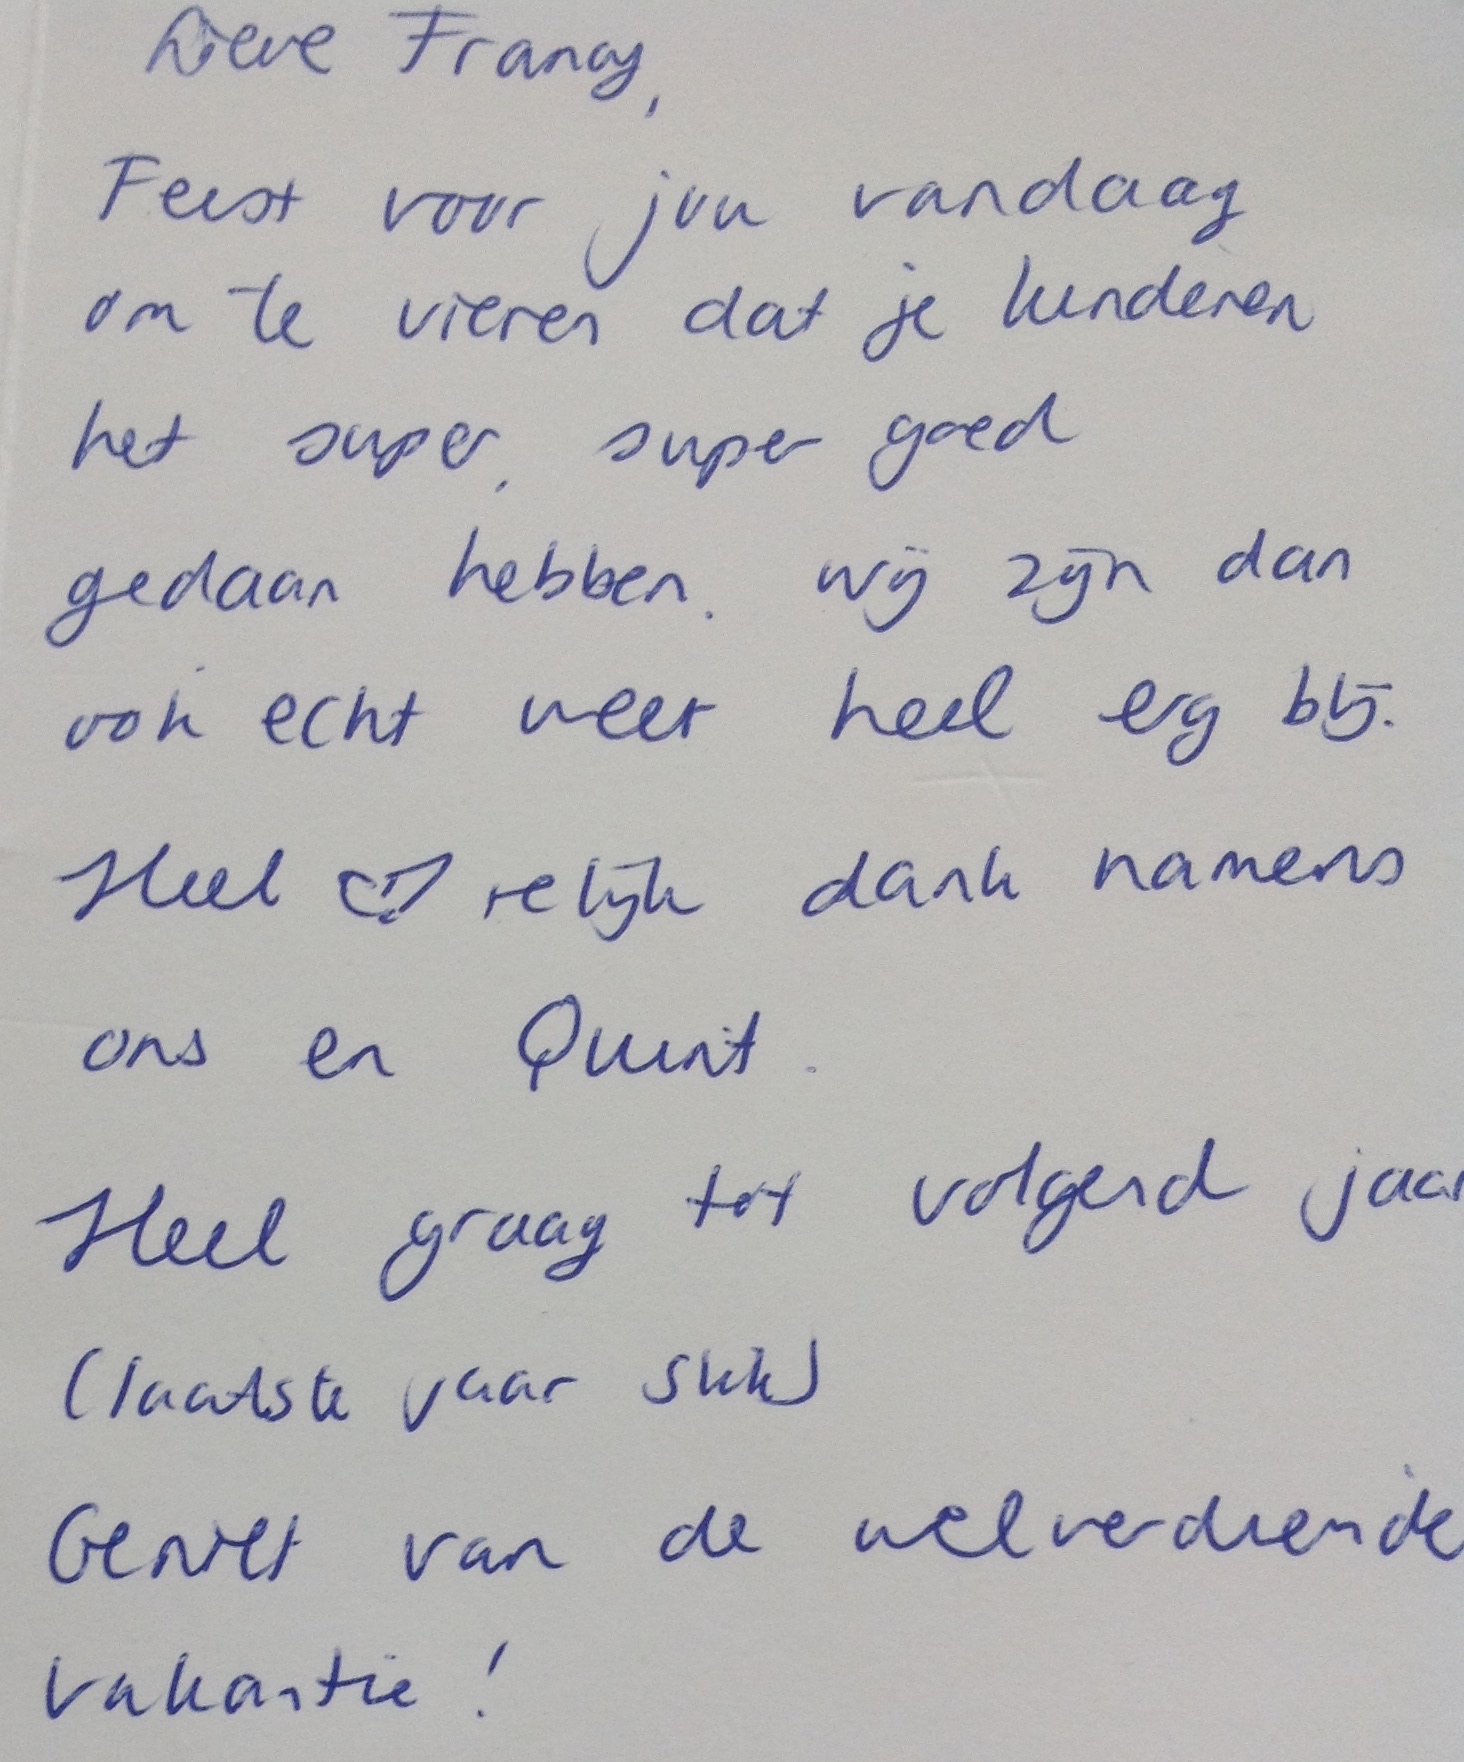 Lieve Francy,
Feest voor jou vandaag
om te vieren dat je kinderen
het super, super goed
gedaan hebben. wij zijn dan
ook echt weer heel erg blij.
Heel ♡relijk dank namens
ons en Quint.
Heel graag tot volgend jaar
(laatste jaar snik)
Geniet van de welverdiende
vakantie!